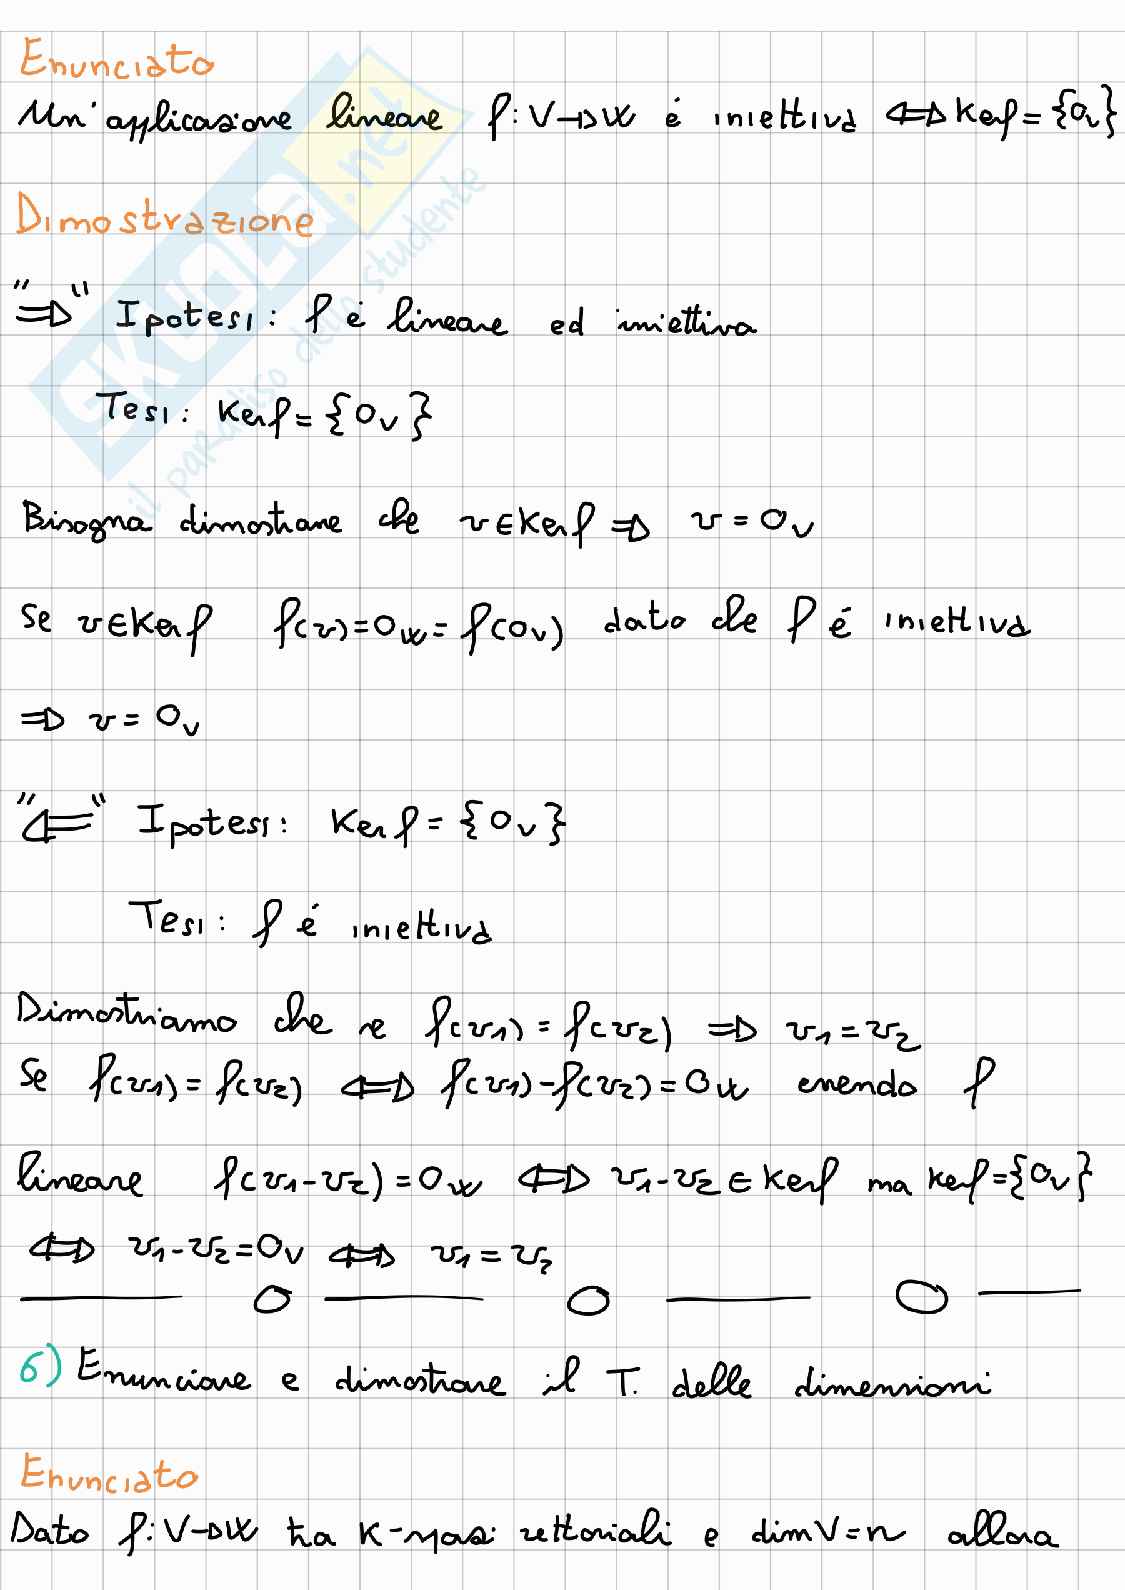 Enunciato
Un'applicazione lineare f: V→W é iniettiva ⟺ Ker f = {0_V}
Dimostrazione
"⇒" Ipotesi: f é lineare ed iniettiva
Tesi: Ker f = {0_V}
Bisogna dimostrare che v∈Ker f ⇒ v = 0_V
Se v∈Ker f f(v) = 0_W = f(0_V) dato che f é iniettiva
⇒ v = 0_V
"⇐" Ipotesi: Ker f = {0_V}
Tesi: f é iniettiva
Dimostriamo che se f(v1) = f(v2) ⇒ v1 = v2
Se f(v1) = f(v2) ⟺ f(v1) - f(v2) = 0_W essendo f
lineare f(v1 - v2) = 0_W ⟺ v1 - v2 ∈ Ker f ma Ker f = {0_V}
⟺ v1 - v2 = 0_V ⟺ v1 = v2
6) Enunciare e dimostrare il T. delle dimensioni
Enunciato
Dato f: V→W tra K-spazi vettoriali e dim V = n allora
SKUOLA.net
il paradiso dello studente